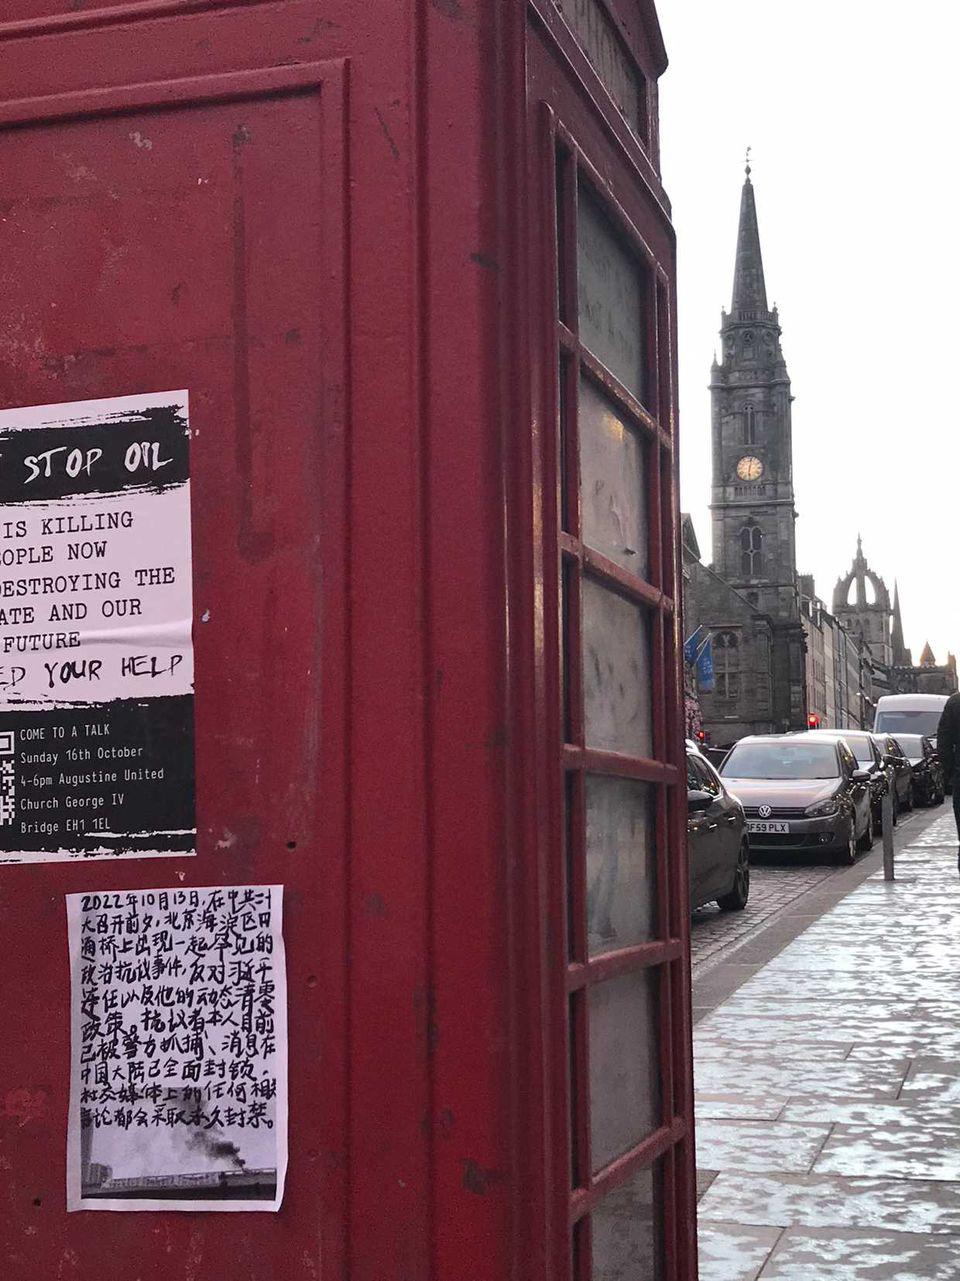 STOP OIL
IS KILLING
OPLE NOW
DESTROYING THE
ATE AND OUR
FUTURE
ED YOUR HELP
COME TO A TALK
Sunday 16th October
4-6pm Augustine United
Church George IV
Bridge EH1 1EL
2022年10月13日,在中共二十
大召开前夕,北京海淀区四
通桥上出现一起罕见的
政治抗议事件,反对习近平
连任以及他的动态清零
政策。抗议者本人目前
已被警方抓捕、消息在
中国大陆已全面封锁,
社交媒体上的任何相关
言论都会采取永久封禁。
F59 PLX